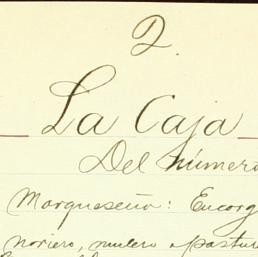 2.
La Caja
Del número
Marqueseño: Encarg
noriero, mulero o pastur